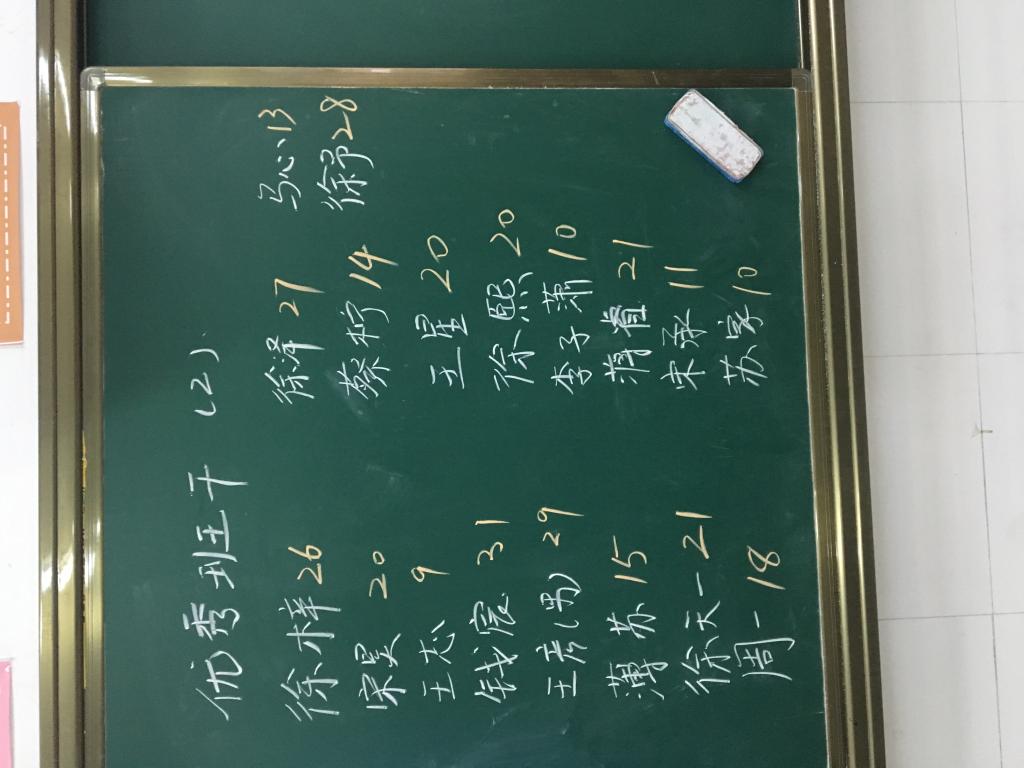 优秀班干 (2)
徐梓 26 徐泽 27 马心 13
宋昊 20 蔡柠 14 徐 28
王志 9 王星 20
钱宸 31 徐熙 20
王彦(男) 29 李子蒲 10
薄苏 15 21
徐天一 21 宋承 11
周一 18 苏家 10